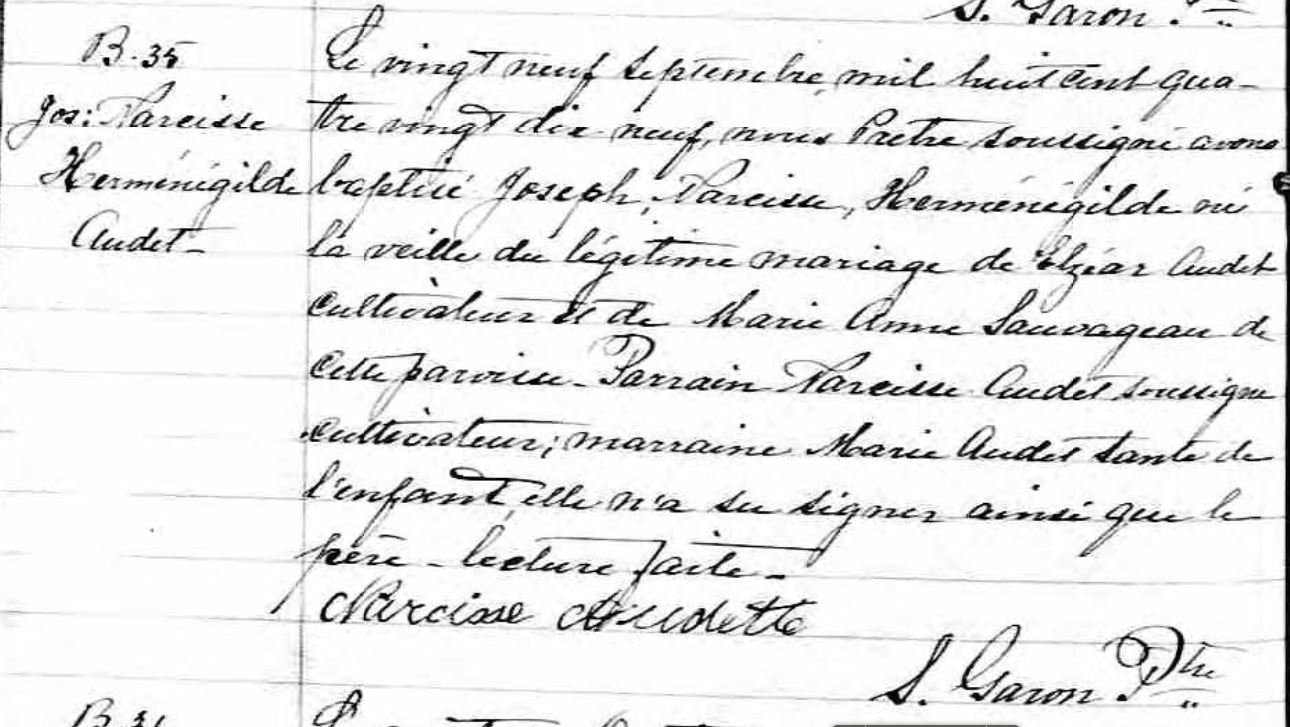 S. Garon Ptre
B. 35
Jos: Narcisse
Herménégilde
Audet
Le vingt neuf Septembre, mil huit cent qua-
tre vingt dix-neuf, nous Prêtre soussigné avons
baptisé Joseph, Narcisse, Herménégilde né
la veille du légitime mariage de Elzéar Audet
cultivateur et de Marie Anne Sauvageau de
cette paroisse - Parrain Narcisse Audet soussigné
cultivateur; marraine Marie Audet tante de
l'enfant, elle n'a su signer ainsi que le
père - lecture faite -
Narcisse Audette
S. Garon Ptre